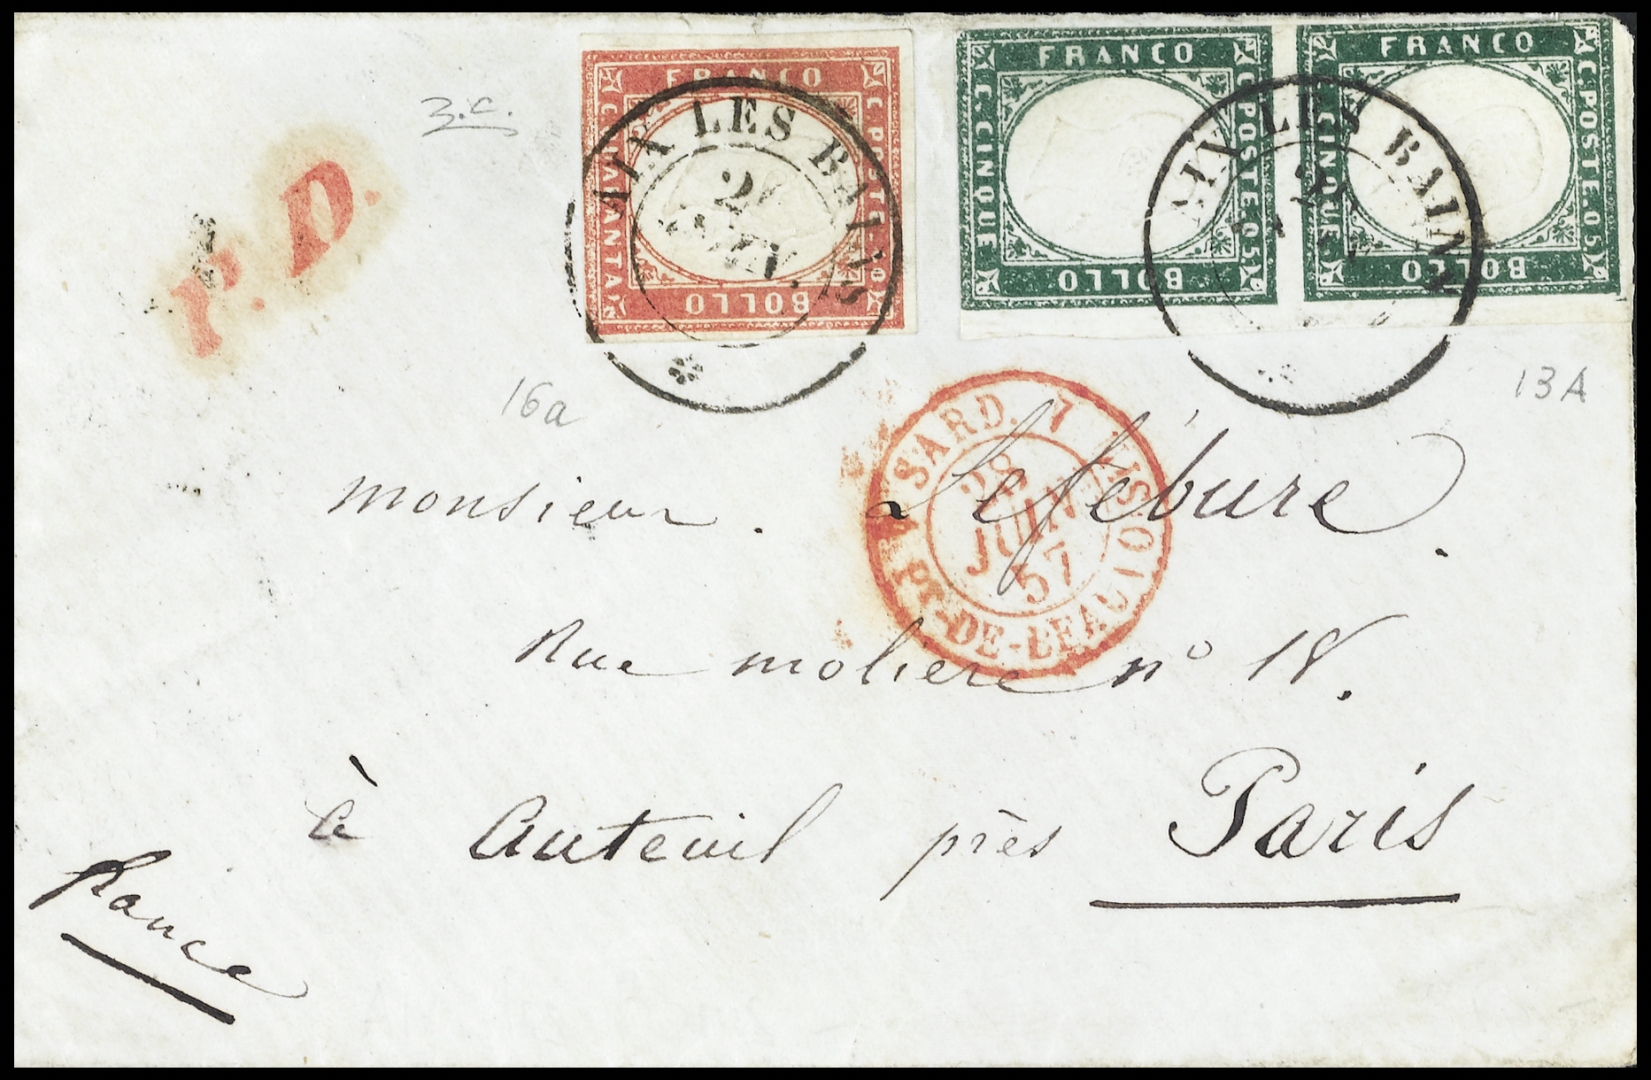 3.c.
P.D.
FRANCO
C. QUARANTA
C. POSTE. 40
BOLLO
AIX LES BAINS
JUIN.
FRANCO
C. CINQUE
C. POSTE. 05.
BOLLO
FRANCO
C. CINQUE
C. POSTE. 05.
BOLLO
AIX LES BAINS
16a
13A
SARD. 7
28
JUIN
57
PT-DE-BEAUVOISIN
monsieur. Lefébure.
Rue moliere n° 18.
à Auteuil près Paris
france